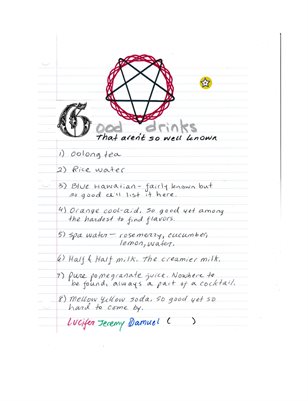 Good drinks
That aren't so well known
1) oolong tea
2) Rice water
3) Blue Hawaiian - fairly known but
so good cill list it here.
4) Orange cool-aid. So good yet among
the hardest to find flavors.
5) Spa water - rosemerry, cucumber,
lemon, water.
6) Half & Half milk. The creamier milk.
7) Pure pomegranate juice. Nowhere to
be found, always a part of a cocktail.
8) Mellow Yellow soda. So good yet so
hard to come by.
Lucifer Jeremy Damuel ( )